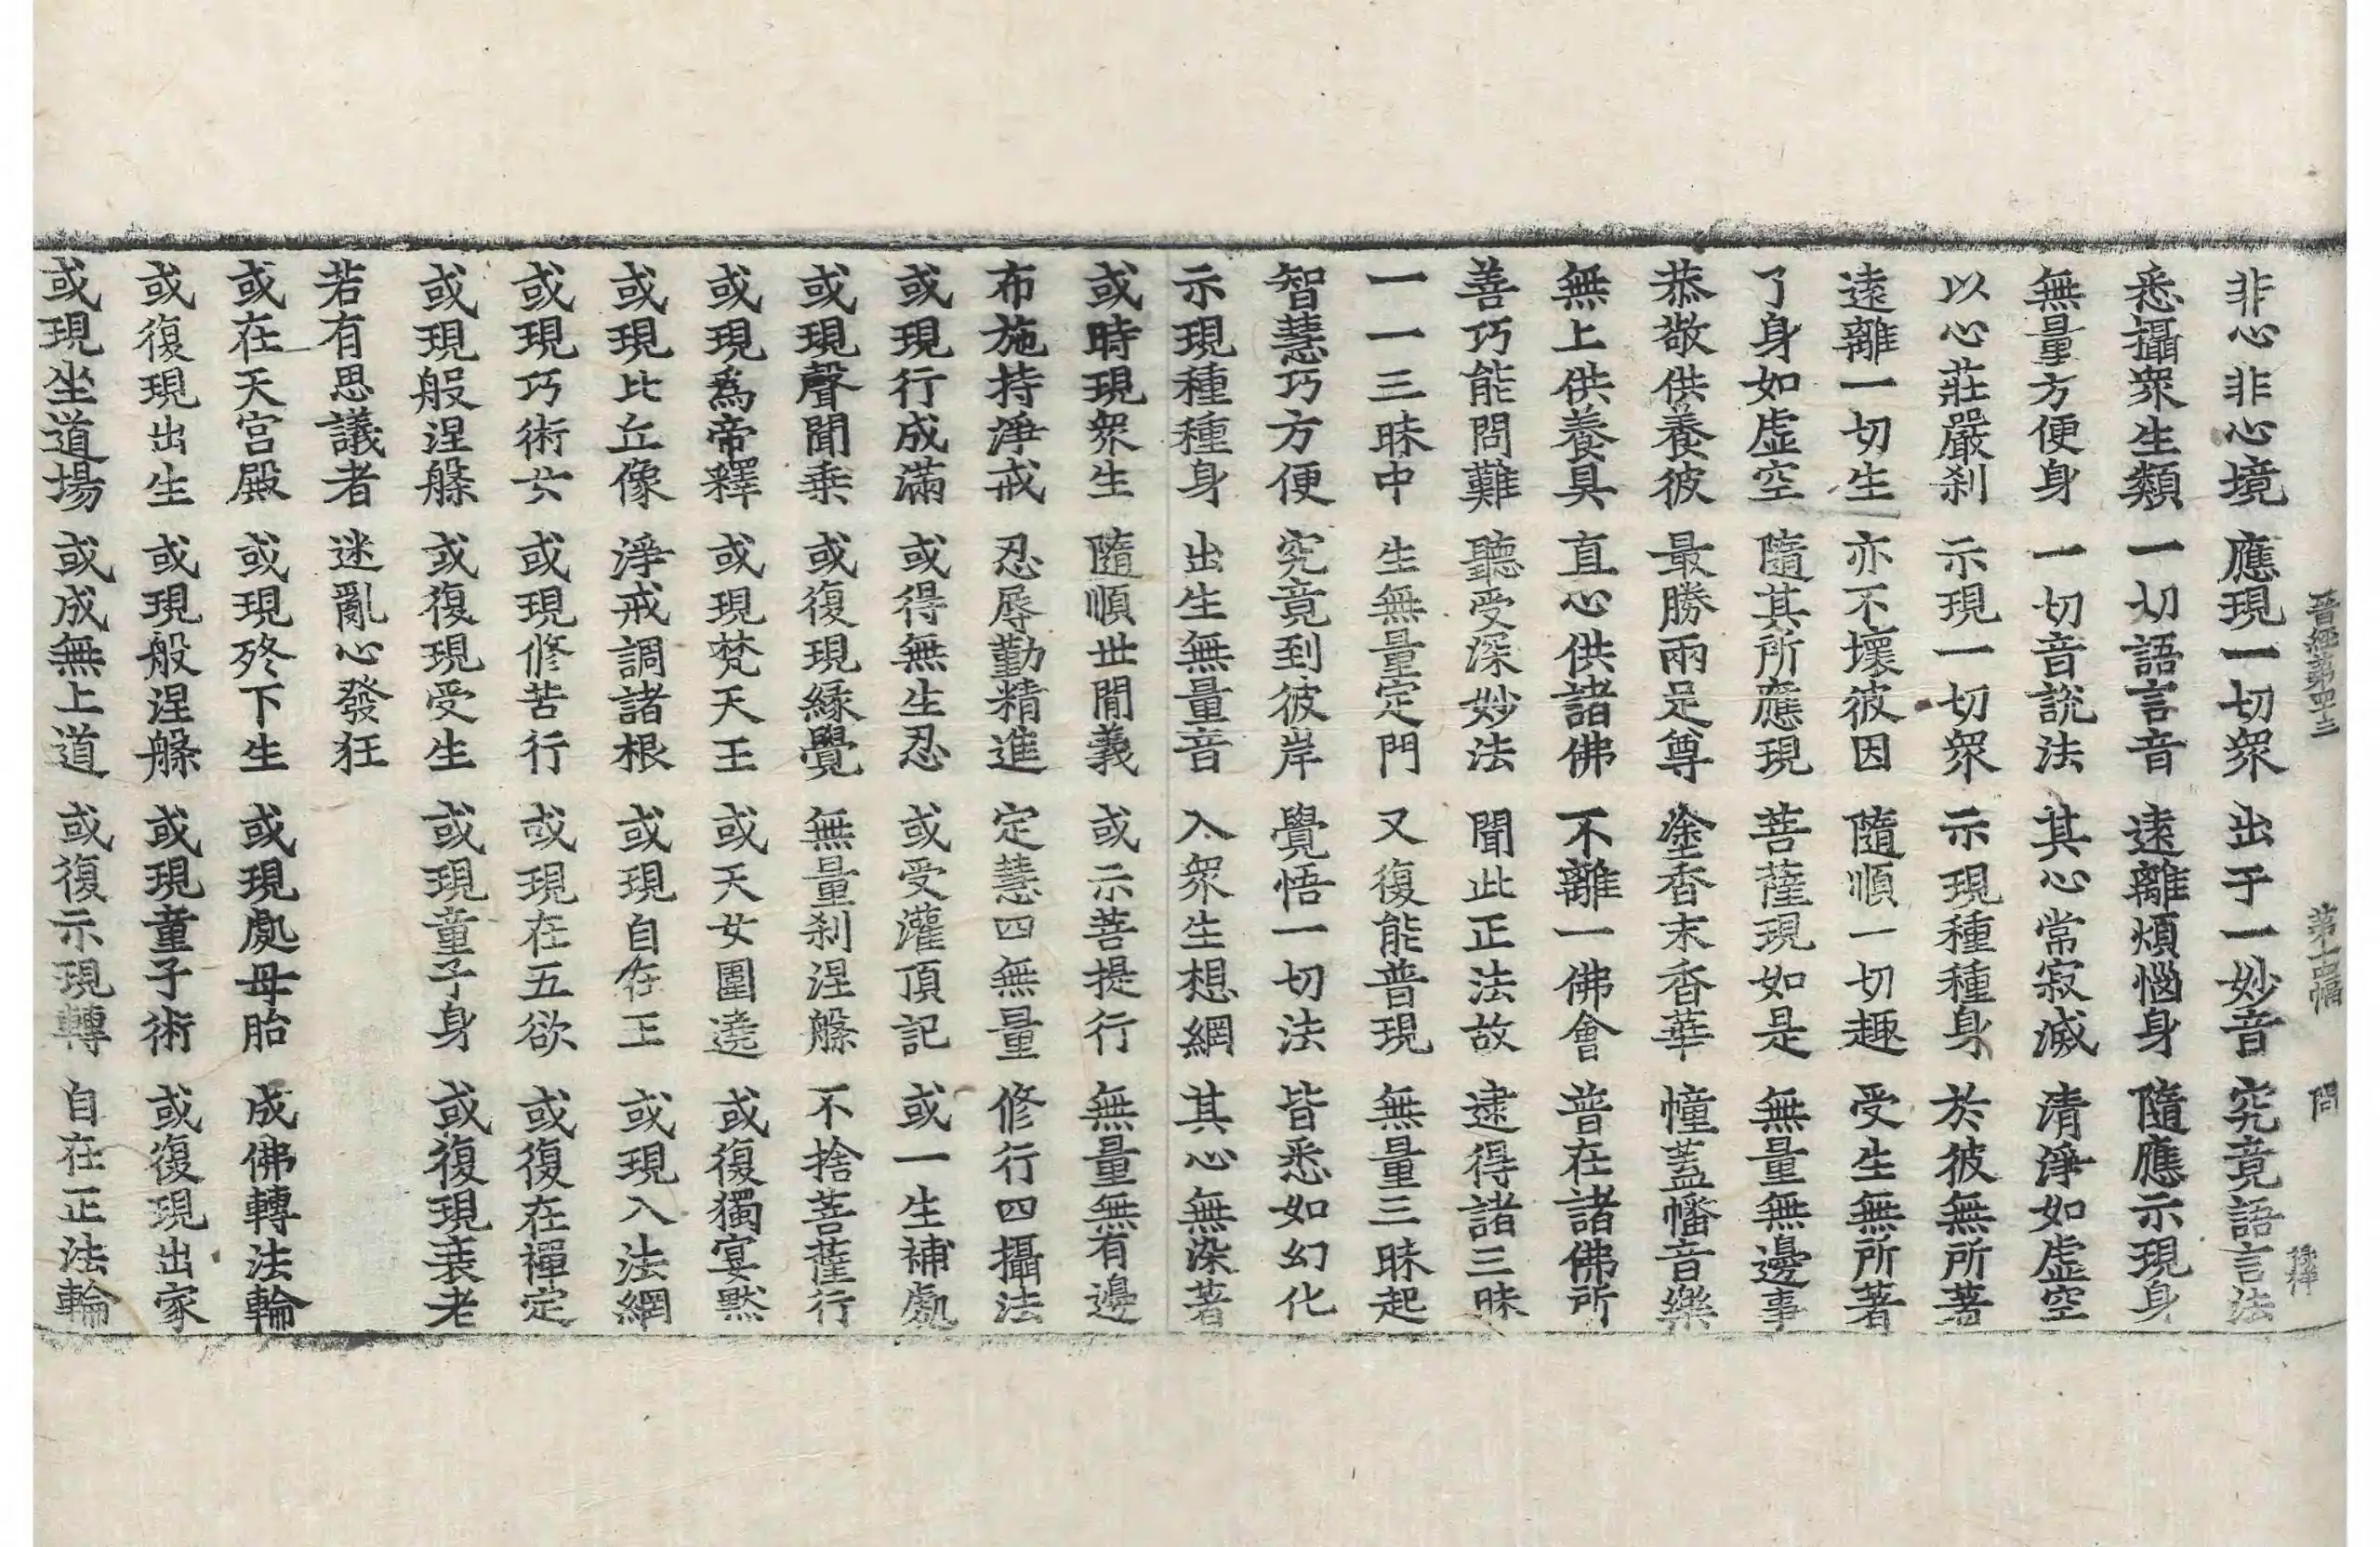 晉經第四十三 第十四幅 問
非心非心境 應現一切衆 出于一妙音 究竟語言法
悉攝衆生類 一切語言音 遠離煩惱身 隨應示現身
無量方便身 一切音說法 其心常寂滅 清淨如虛空
以心莊嚴刹 示現一切衆 示現種種身 於彼無所著
遠離一切生 亦不壞彼因 隨順一切趣 受生無所著
了身如虛空 隨其所應現 菩薩現如是 無量無邊事
恭敬供養彼 最勝兩足尊 塗香末香華 幢蓋幡音樂
無上供養具 直心供諸佛 不離一佛會 普在諸佛所
善巧能問難 聽受深妙法 聞此正法故 逮得諸三昧
一一三昧中 生無量定門 又復能普現 無量三昧起
智慧巧方便 究竟到彼岸 覺悟一切法 皆悉如幻化
示現種種身 出生無量音 入衆生想網 其心無染著
或時現衆生 隨順世間義 或示菩提行 無量無有邊
布施持淨戒 忍辱勤精進 定慧四無量 修行四攝法
或現行成滿 或得無生忍 或受灌頂記 或一生補處
或現聲聞乘 或復現緣覺 無量刹涅槃 不捨菩薩行
或現爲帝釋 或現梵天王 或天女圍遶 或復獨宴默
或現比丘像 淨戒調諸根 或現自在王 或現入法網
或現巧術女 或現修苦行 或現在五欲 或復在禪定
或現般涅槃 或復現受生 或現童子身 或復現衰老
若有思議者 迷亂心發狂
或在天宮殿 或現終下生 或現處母胎 成佛轉法輪
或復現出生 或現般涅槃 或現童子術 或復現出家
或現坐道場 或成無上道 或復示現轉 自在正法輪